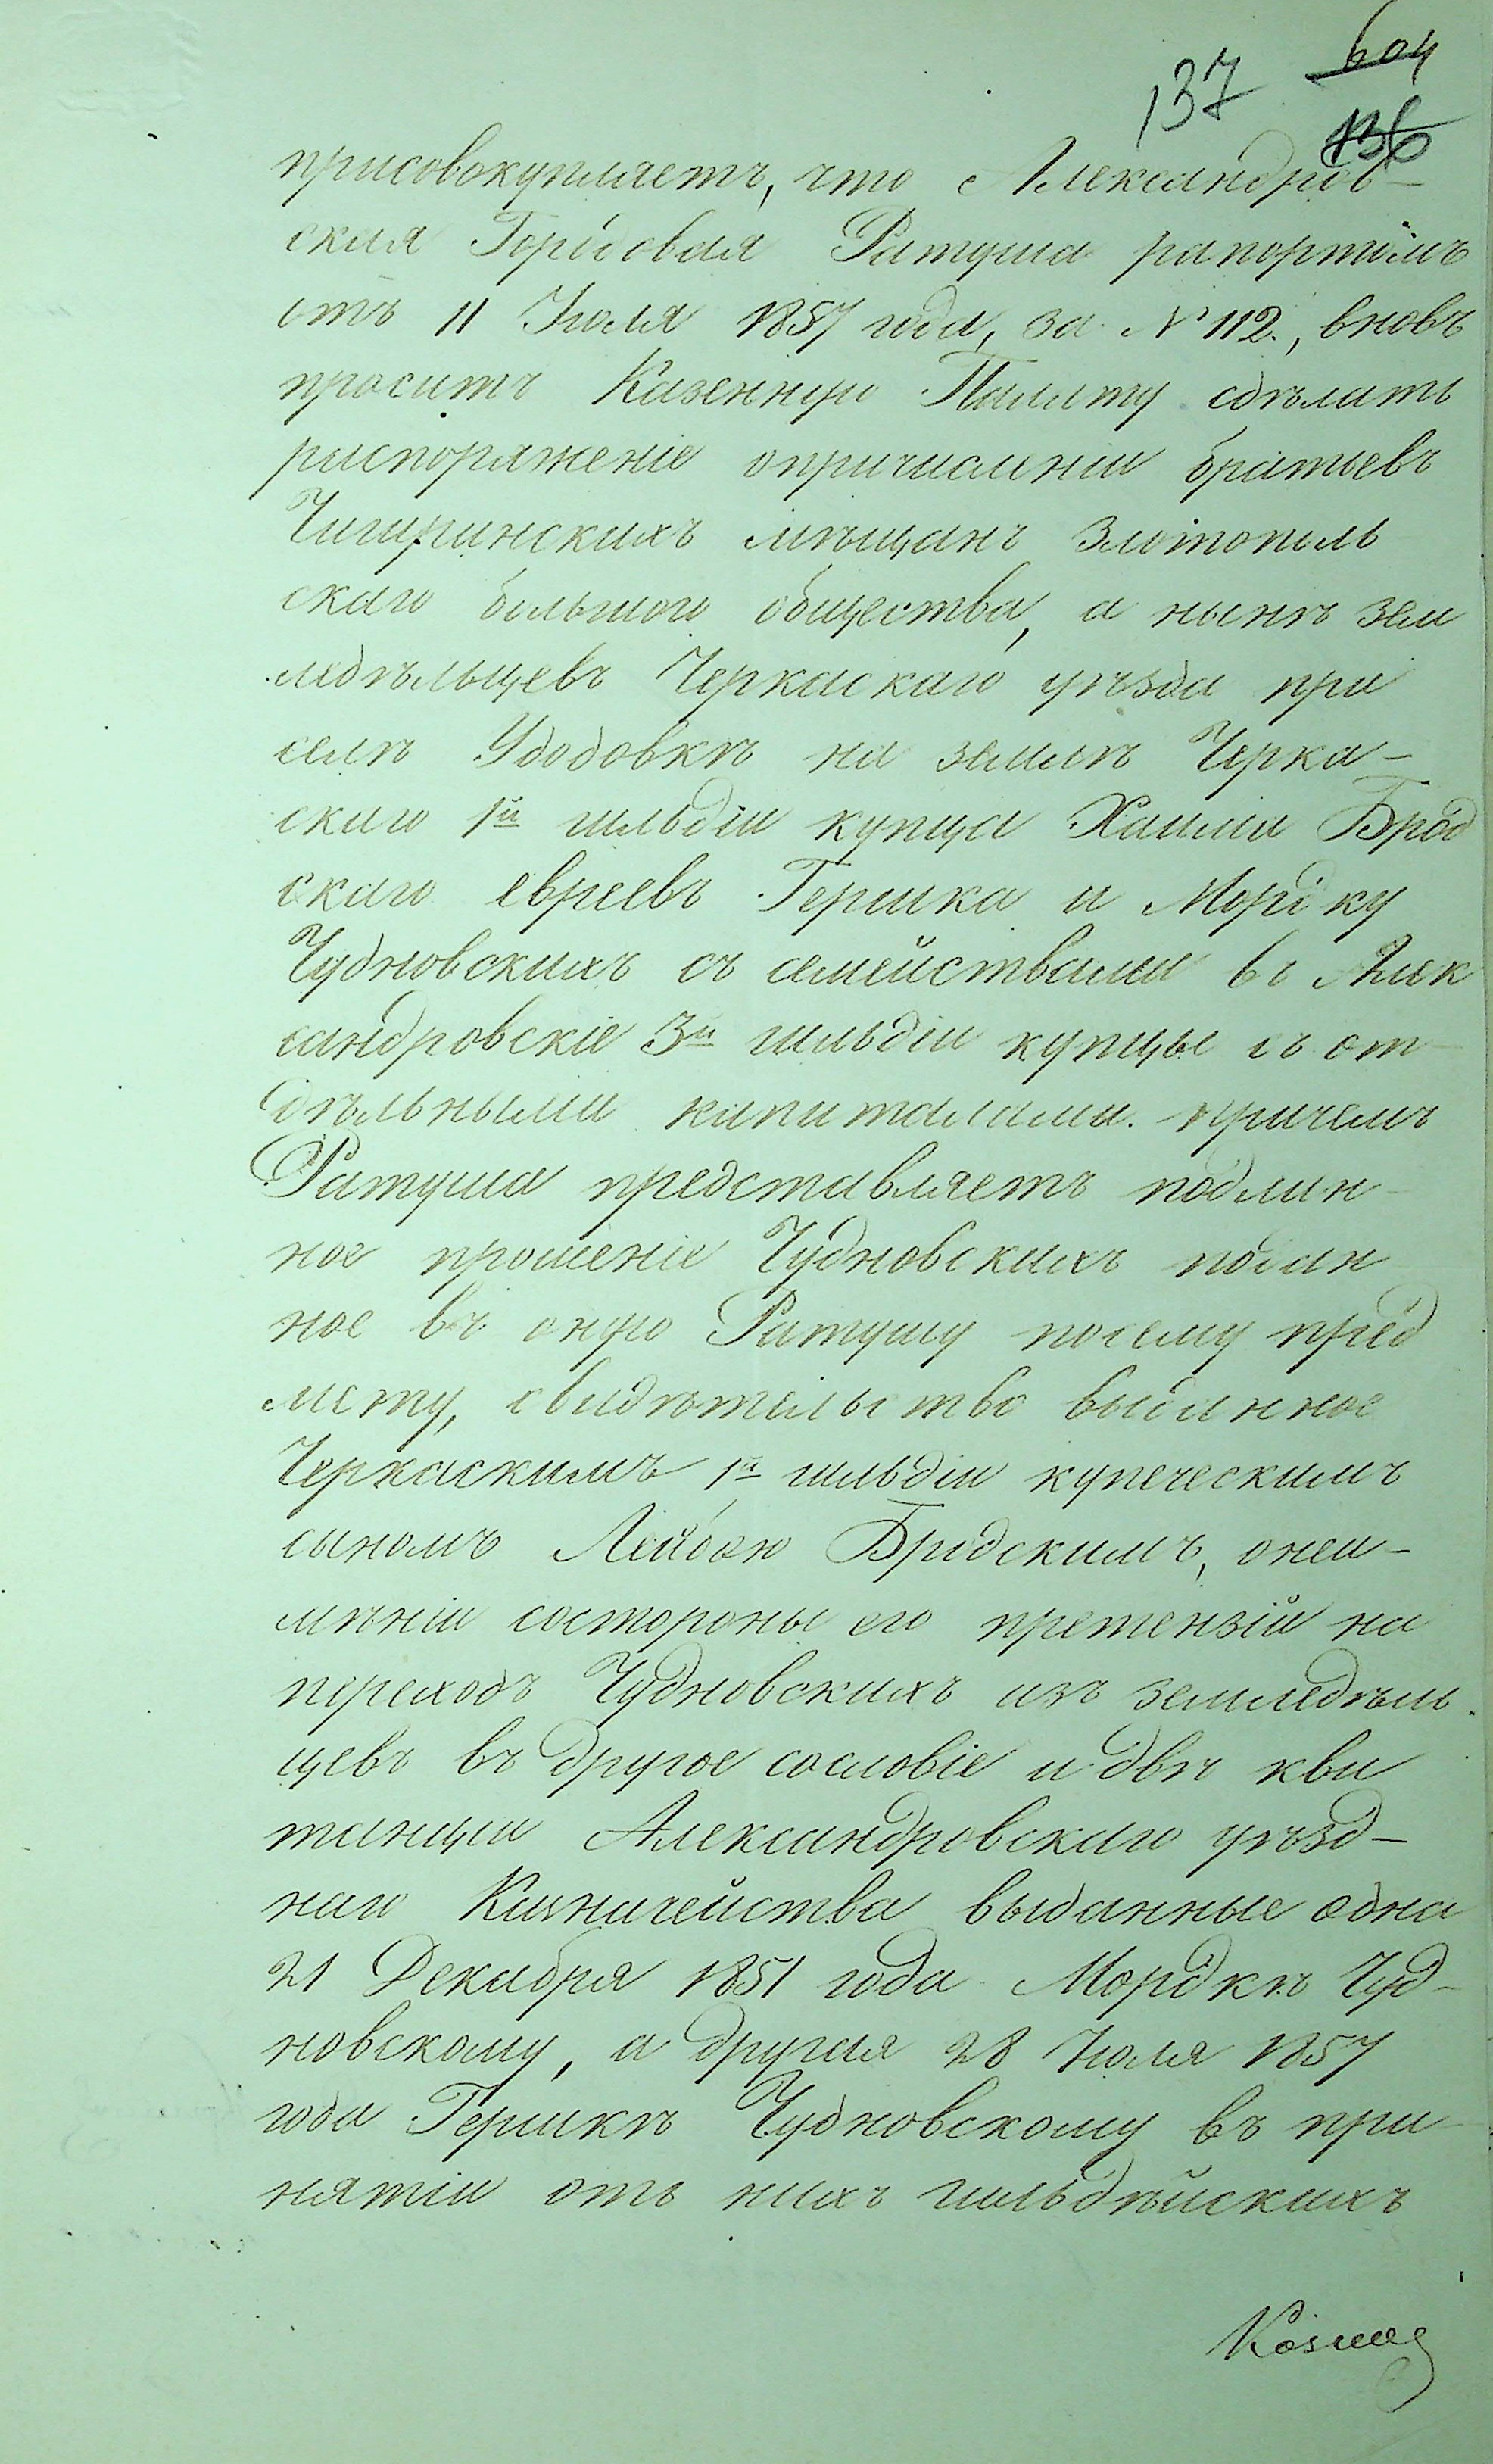 604
137
136
присовокупляетъ, что Александров-
ская Городовая Ратуша рапортомъ
отъ 11 Июля 1857 года, за № 112., вновь
проситъ Казенную Палату сдѣлать
распоряженіе опричислении братьевъ
Чигиринскихъ мѣщанъ Златополь
скаго большого общества, а нынѣ зем
ледѣльцевъ Черкаскаго уѣзда при
селѣ Удодовкѣ на землѣ Черка-
скаго 1й гильдіи купца Хаима Брод
скаго евреевъ Гершка и Мордку
Чудновскихъ съ семействами въ Алек
сандровскіе 3й гильдіи купцы съ от-
дѣльными капиталами. причемъ
Ратуша представляетъ подлин-
ное прошеніе Чудновскихъ подан
ное въ оную Ратушу посему пред
мету, свидѣтельство выданное
Черкаскимъ 1й гильдіи купеческимъ
сыномъ Лейбою Бродскимъ, онеи-
мѣніи состороны его претензій на
переходъ Чудновскихъ изъ земледѣль
цевъ въ другое сословіе и двѣ кви
танціи Александровскаго уѣзд-
наго Казначейства выданные одна
21 Декабря 1851 года Мордкѣ Чуд-
новскому, а другая 28 Июля 1857
года Гершкѣ Чудновскому въ при
нятіи отъ нихъ гильдѣйскихъ